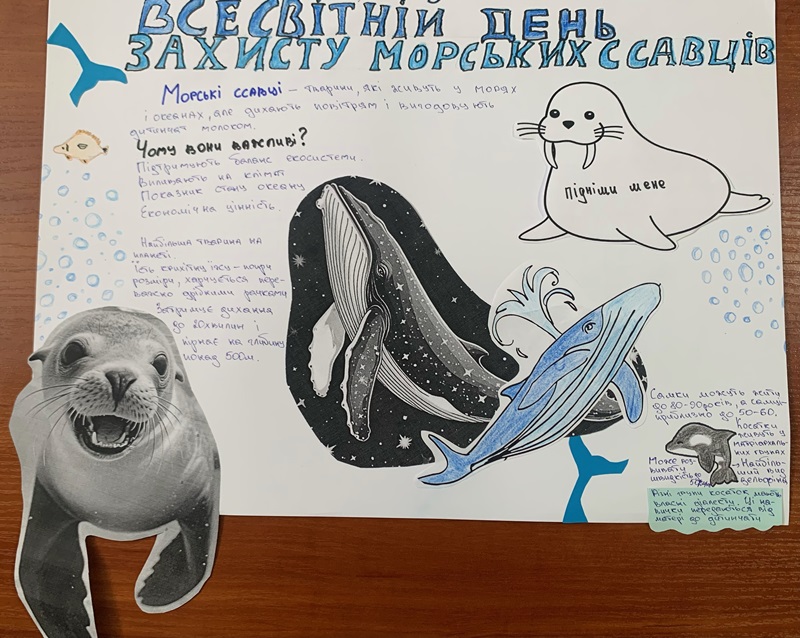 ВСЕСВІТНІЙ ДЕНЬ
ЗАХИСТУ МОРСЬКИХ ССАВЦІВ
Морські ссавці – тварини, які живуть у морях
і океанах, але дихають повітрям і вигодовують
дитинчат молоком.
Чому вони важливі?
Підтримують баланс екосистеми.
Впливають на клімат
Показник стану океану
Економічна цінність.
Підніми мене
Найбільша тварина на
планеті.
Їсть крихітну їжу – попри
розміри, харчується пере-
важно дрібними рачками
Затримує дихання
до 20 хвилин і
пірнає на глибину
понад 500м.
Самки можуть жити
до 80-90 років, а самці
приблизно до 50-60.
Косатки
живуть у
матріархаль-
них групах
Може роз-
вивати
швидкість до
Найбіль-
ший вид
дельфінів
Різні групи косаток мають
власні діалекти. Ці на-
вички передаються від
матері до дитинчати